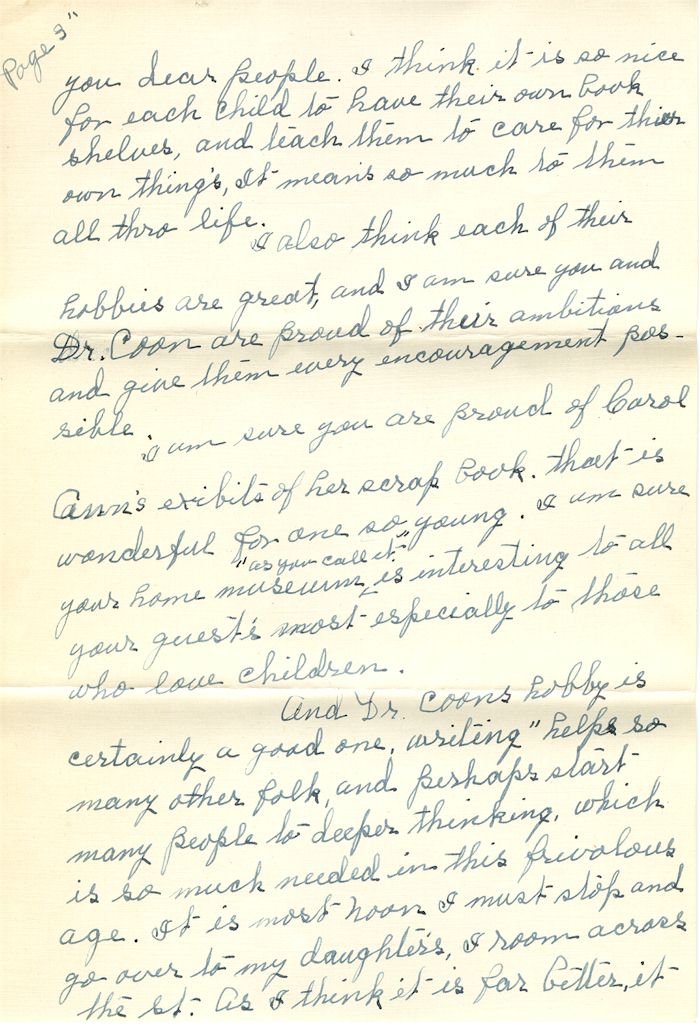 Page 3"
you dear people. I think it is so nice
for each child to have their own book
shelves, and teach them to care for thier
own thing's, It means so much to them
all thro life.
I also think each of their
hobbies are great, and I am sure you and
Dr. Coon are proud of their ambitions
and give them every encouragement pos-
sible
I am sure you are proud of Carol
Ann's exibits of her scrap book. that is
wonderful for one so young. I am sure
"as you call it"
your home museum, is interesting to all
your guest's most especially to those
who love children.
And Dr. Coons hobby is
certainly a good one, writing" helps so
many other folk, and perhaps start
many people to deeper thinking, which
is so much needed in this frivolous
age. It is most noon I must stop and
go over to my daughter's, I room across
the st. As I think it is far better, it